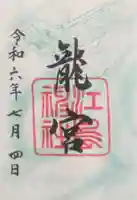 龍宮
令和六年七月四日
江島神社